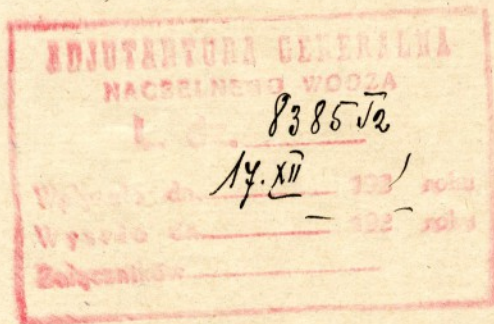 ADJUTANTURA GENERALNA
NACZELNEGO WODZA
L. d. 8385 T2
17.XII 192 / roku
Wyszło dn. — 192 — roku
Załączników